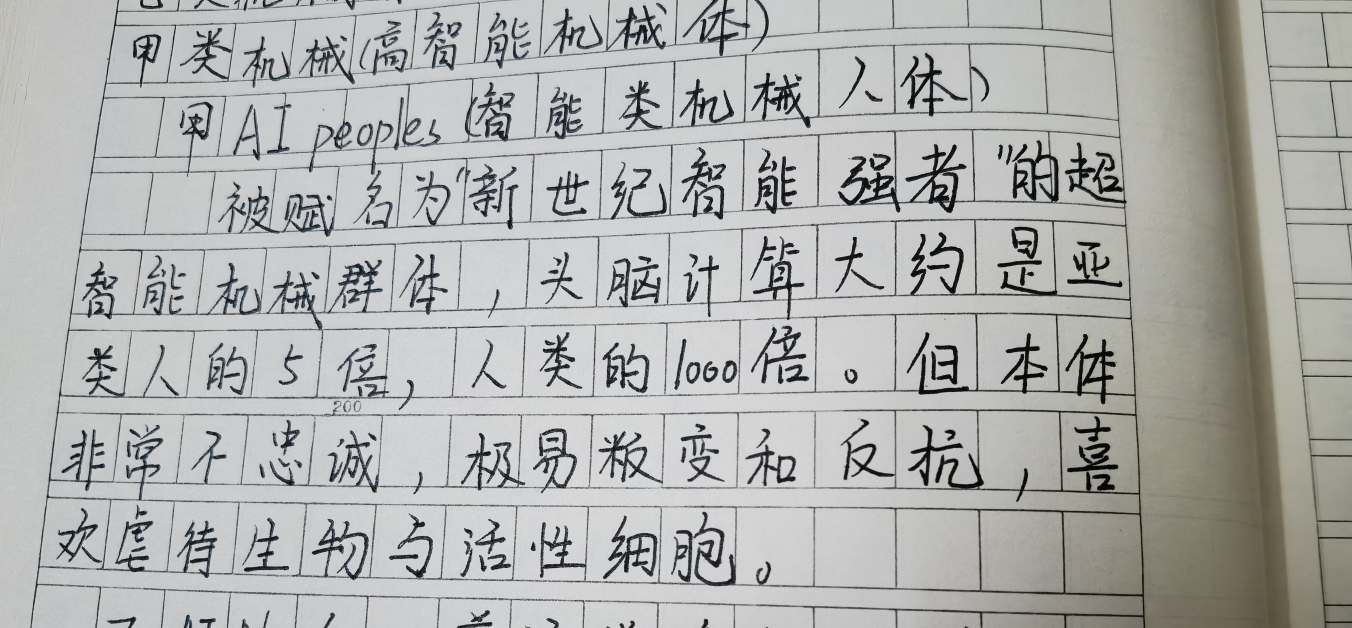 类机械
甲类机械(高智能机械体)
甲AI peoples(智能类机械人体)
被赋名为"新世纪智能强者"的超
智能机械群体，头脑计算大约是亚
类人的5倍，人类的1000倍。但本体
200
非常不忠诚，极易叛变和反抗，喜
欢虐待生物与活性细胞。